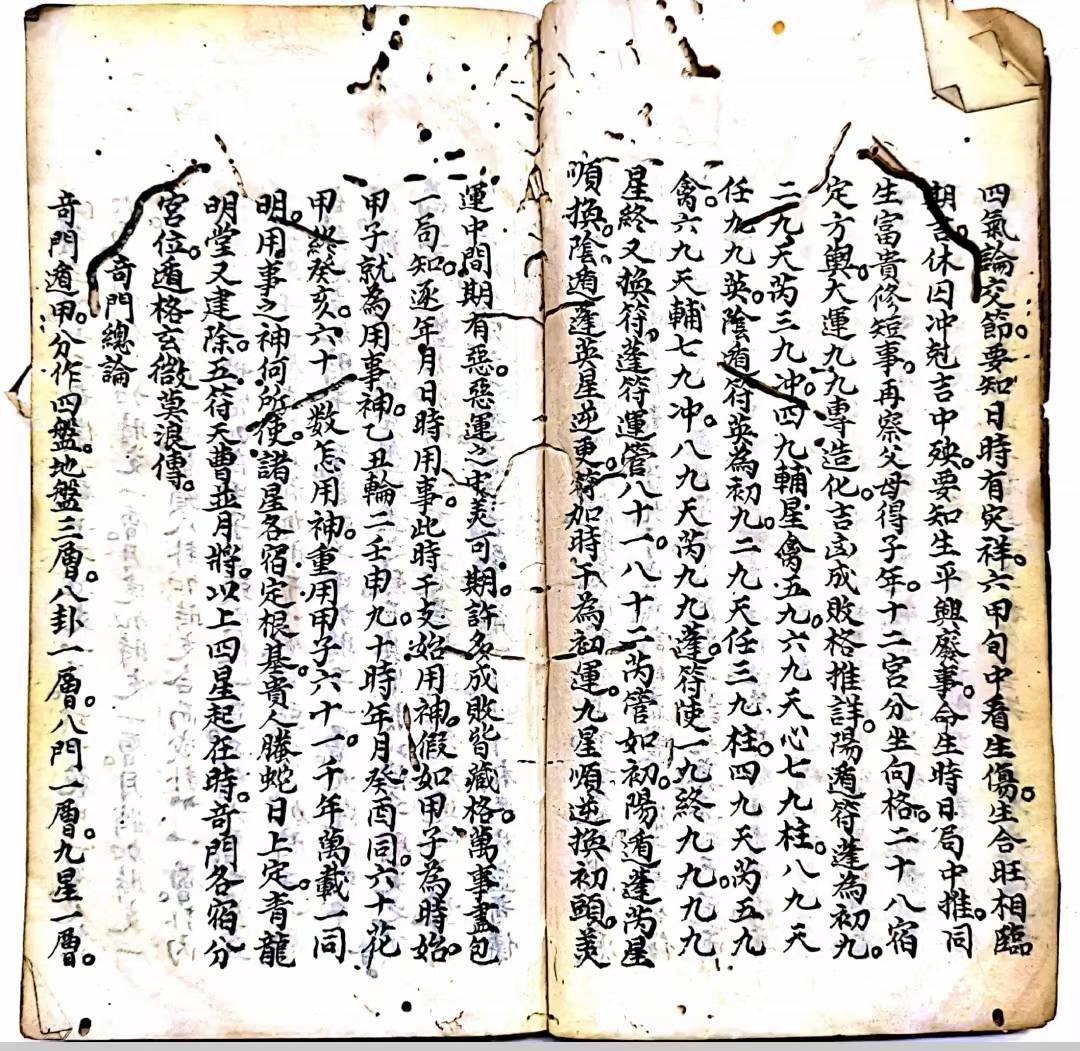 四氣論交節。要知日時有灾祥。六甲旬中看生傷。生合旺相臨
期吉。休囚冲尅吉中殃。要知生平興廢事。命生時日局中推。同
生富貴修短事。再察父母得子年。十二宮分坐向格。二十八宿
定方輿。大運九九專造化。吉凶成敗格推詳。陽遁符蓬為初九。
二九天芮三九冲。四九輔星禽五九。六九天心七九柱。八九天
任九九英。陰遁符英為初九。二九天任三九柱。四九天芮五九
禽。六九天輔七九冲。八九天芮九九蓬。符使一九終九九九九
星終又換符。蓬符運管八十一。八十二芮管如初。陽遁蓬芮星
順換。陰遁蓬英星逆更。符加時干為初運。九星順逆換初頭。美
運中間期有惡。惡運之中美可期。許多成敗皆藏格。萬事盡包
一局知。逐年月日時用事。此時干支始用神。假如甲子為時始。
甲子就為用事神。乙丑輪二壬申九。十時年月癸酉同。六十花
甲終癸亥。六十一數怎用神。重用甲子六十一。千年萬載一同
明。用事之神何所使。諸星各宿定根基。貴人螣蛇日上定。青龍
明堂又建除。五符天曹並月將。以上四星起在時。竒門各宿分
宮位。遁格玄微莫浪傳。
竒門總論
竒門遁甲。分作四盤。地盤三層。八卦一層。八門一層。九星一層。